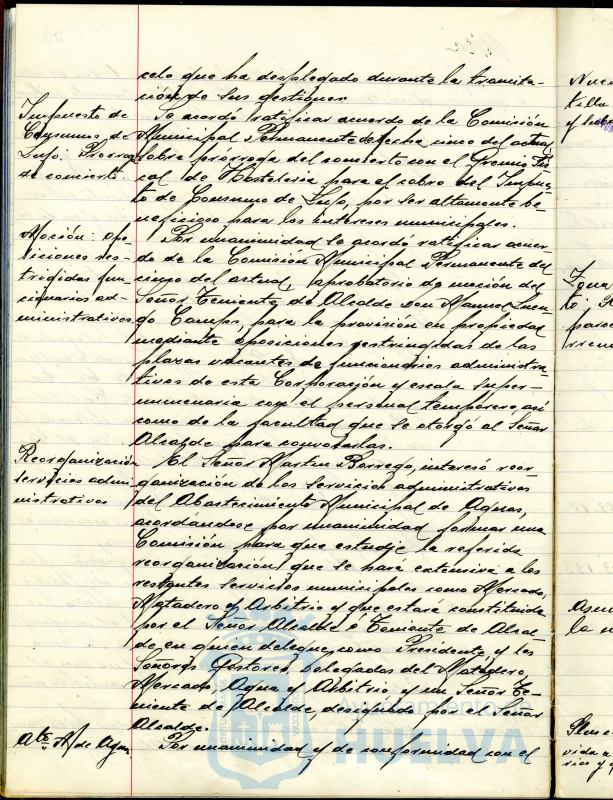 celo que ha desplegado durante la tramita-
ción de sus gestiones.
Impuesto de
Consumos de
Lujo: Prorroga
de concierto.
Se acordó ratificar acuerdo de la Comisión
Municipal Permanente de fecha cinco del actual,
sobre prorroga del concierto con el Gremio Fis-
cal de Hosteleria para el cobro del Impues-
to de Consumo de Lujo, por ser altamente be-
neficioso para los intereses municipales.
Moción: opo-
siciones res-
tringidas fun-
cionarios ad-
ministrativos
Por unanimidad se acordó ratificar acuer-
do de la Comisión Municipal Permanente del
cinco del actual, aprobatorio de moción del
Señor Teniente de Alcalde Don Manuel
Campos, para la provisión en propiedad
mediante oposiciones restringidas de las
plazas vacantes de funcionarios administra-
tivos de esta Corporación y escala super-
numeraria con el personal temporero, así
como de la facultad que se otorgó al Señor
Alcalde para convocarlas.
Reorganización
servicios admi-
nistrativos
El Señor Martin Borrego, interesó reor-
ganización de los servicios administrativos
del Abastecimiento Municipal de Aguas,
acordandose por unanimidad formar una
Comisión para que estudie la referida
reorganización que se hará extensiva a los
restantes servicios municipales como Mercado,
Matadero y Arbitrio y que estará constituida
por el Señor Alcalde ó Teniente de Alcal-
de en quien delegue, como Presidente y los
Señores Gestores, Delegados del Matadero
Mercado, Agua y Arbitrio, y un Señor Te-
niente de Alcalde, designado por el Señor
Alcalde.
Abto. M. de Aguas
Por unanimidad y de conformidad con el
Ayuntamiento de
HUELVA
y
Zona
to
la
vida a
rios y